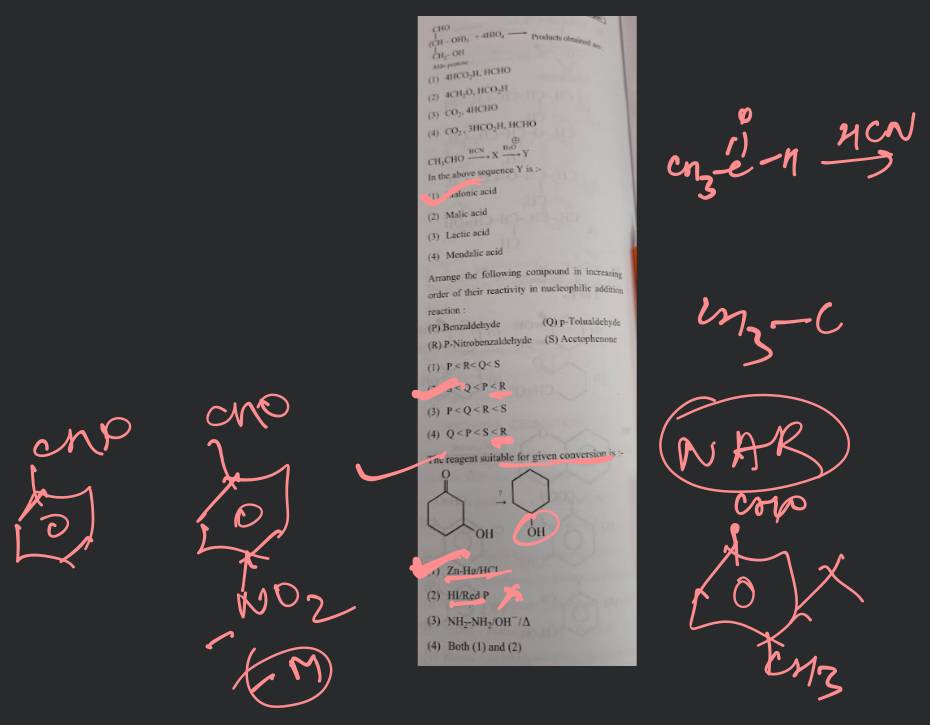 CHO
(CH – OH)₄ + 4HIO₄ ⟶ Products obtained are
CH₂–OH
(1) 4HCO₂H, HCHO
(2) 4CH₂O, HCO₂H
(3) CO₂, 4HCHO
(4) CO₂, 3HCO₂H, HCHO
CH₃CHO —HCN→ X —H₂O ⊕→ Y
In the above sequence Y is :-
(2) Malic acid
(3) Lactic acid
(4) Mendalic acid
Arrange the following compound in increasing
order of their reactivity in nucleophilic addition
reaction :
(P) Benzaldehyde (Q) p-Tolualdehyde
(R) P-Nitrobenzaldehyde (S) Acetophenone
(1) P < R< Q< S
< Q < P < R
(3) P < Q < R < S
(4) Q < P < S < R
The reagent suitable for given conversion is :-
O
?
OH
OH
Zn-Hg/HCl
(2) HI/Red P
(3) NH₂-NH₂/OH⁻/Δ
(4) Both (1) and (2)
O
CH₃–C–H HCN
CH₃–C
NAR
CHO
CHO
NO₂
–M
CHO
CH₃